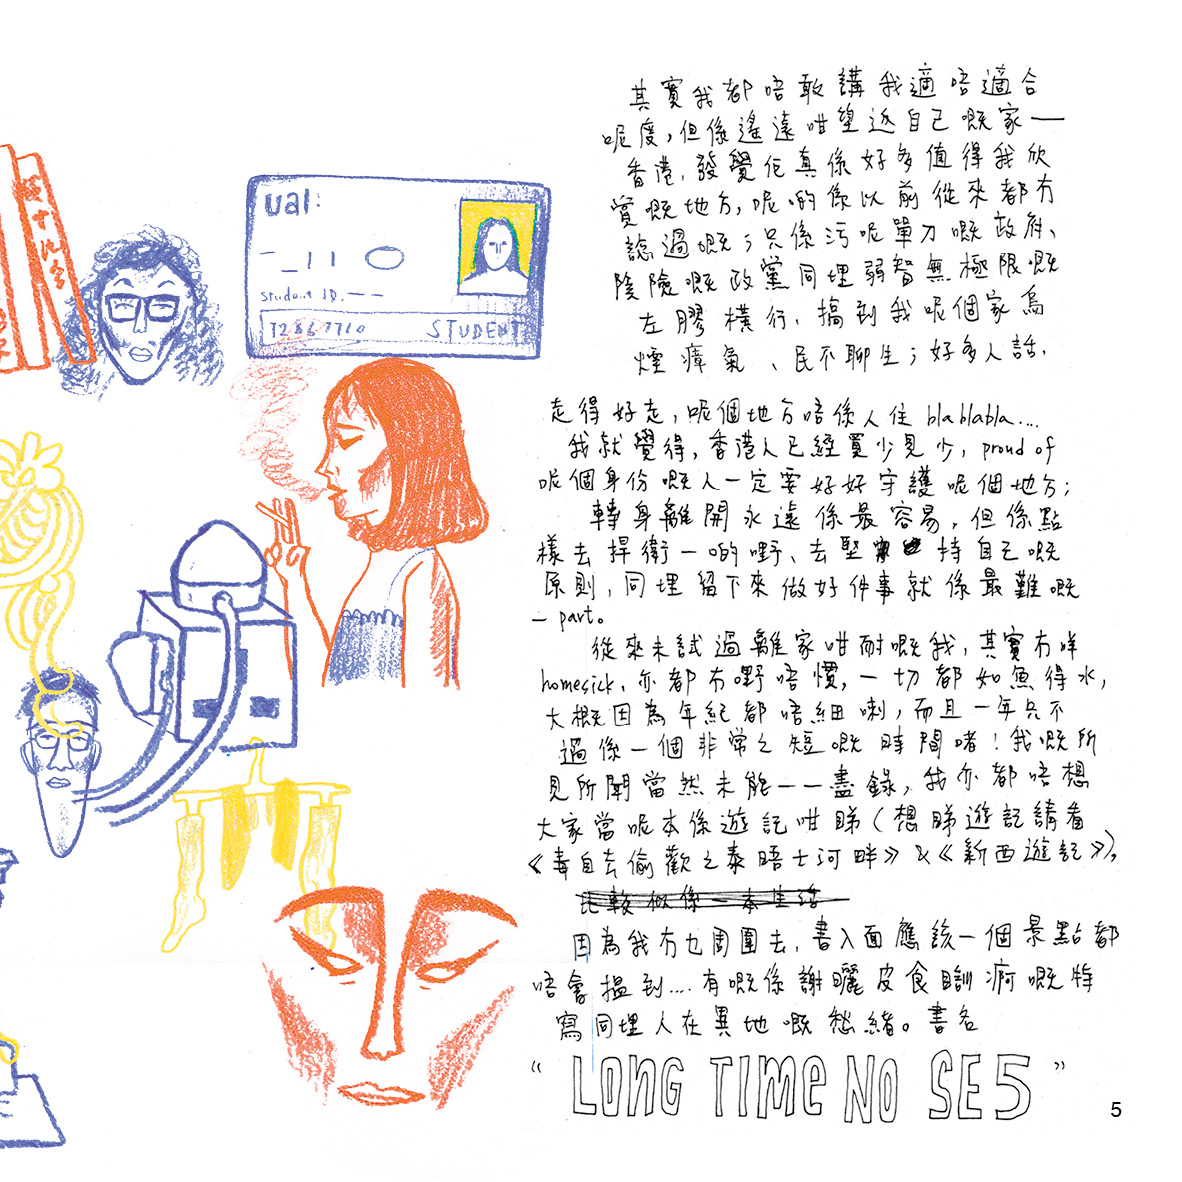 ual:
Student ID.
STUDENT
其實我都唔敢講我適唔適合
呢度,但係遙遠咁望返自己嘅家一
香港,發覺佢真係好多值得我欣
賞嘅地方,呢啲係以前從來都冇
諗過嘅;只係污呢單刀嘅政府、
陰險嘅政黨同埋弱智無極限嘅
左膠橫行、搞到我呢個家烏
煙瘴氣、民不聊生;好多人話,
走得好走,呢個地方唔係人住 blablabla....
我就覺得,香港人已經買少見少, proud of
呢個身份嘅人一定要好好守護呢個地方;
轉身離開永遠係最容易,但係點
樣去捍衛一啲嘢、去堅持自己嘅
原則,同埋留下來做好件事就係最難嘅
一 part。
從來未試過離家咁耐嘅我,其實冇咩
homesick,亦都冇嘢唔慣,一切都如魚得水,
大概因為年紀都唔細喇,而且一年只不
過係一個非常之短嘅時間啫!我嘅所
見所聞當然未能一一盡錄,我亦都唔想
大家當呢本係遊記咁睇(想睇遊記請看
《毒自去偷歡之泰晤士河畔》&《新西遊記》),
比較似係一本生活
因為我冇乜周圍去,書入面應該一個景點都
唔會搵到....有嘅係謝曬皮食瞓痾嘅特
寫同埋人在異地嘅愁緒。書名
“LONG TIME NO SE5”
5